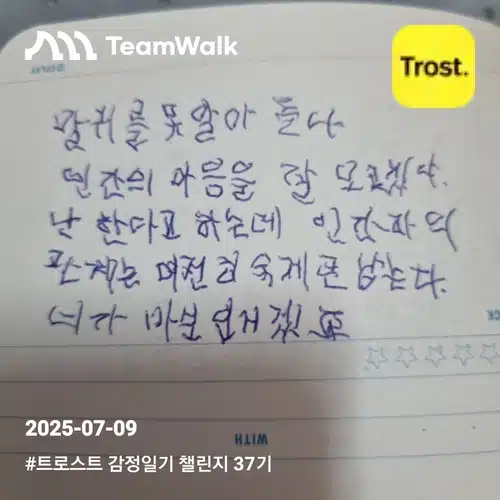 TeamWalk
Trost.
말귀를 못 알아 듣나
인간의 마음을 잘 모르겠다.
난 한다고 하는데 인간과의
관계는 여전히 숙제로 남는다.
내가
WITH
2025-07-09
#트로스트 감정일기 챌린지 37기